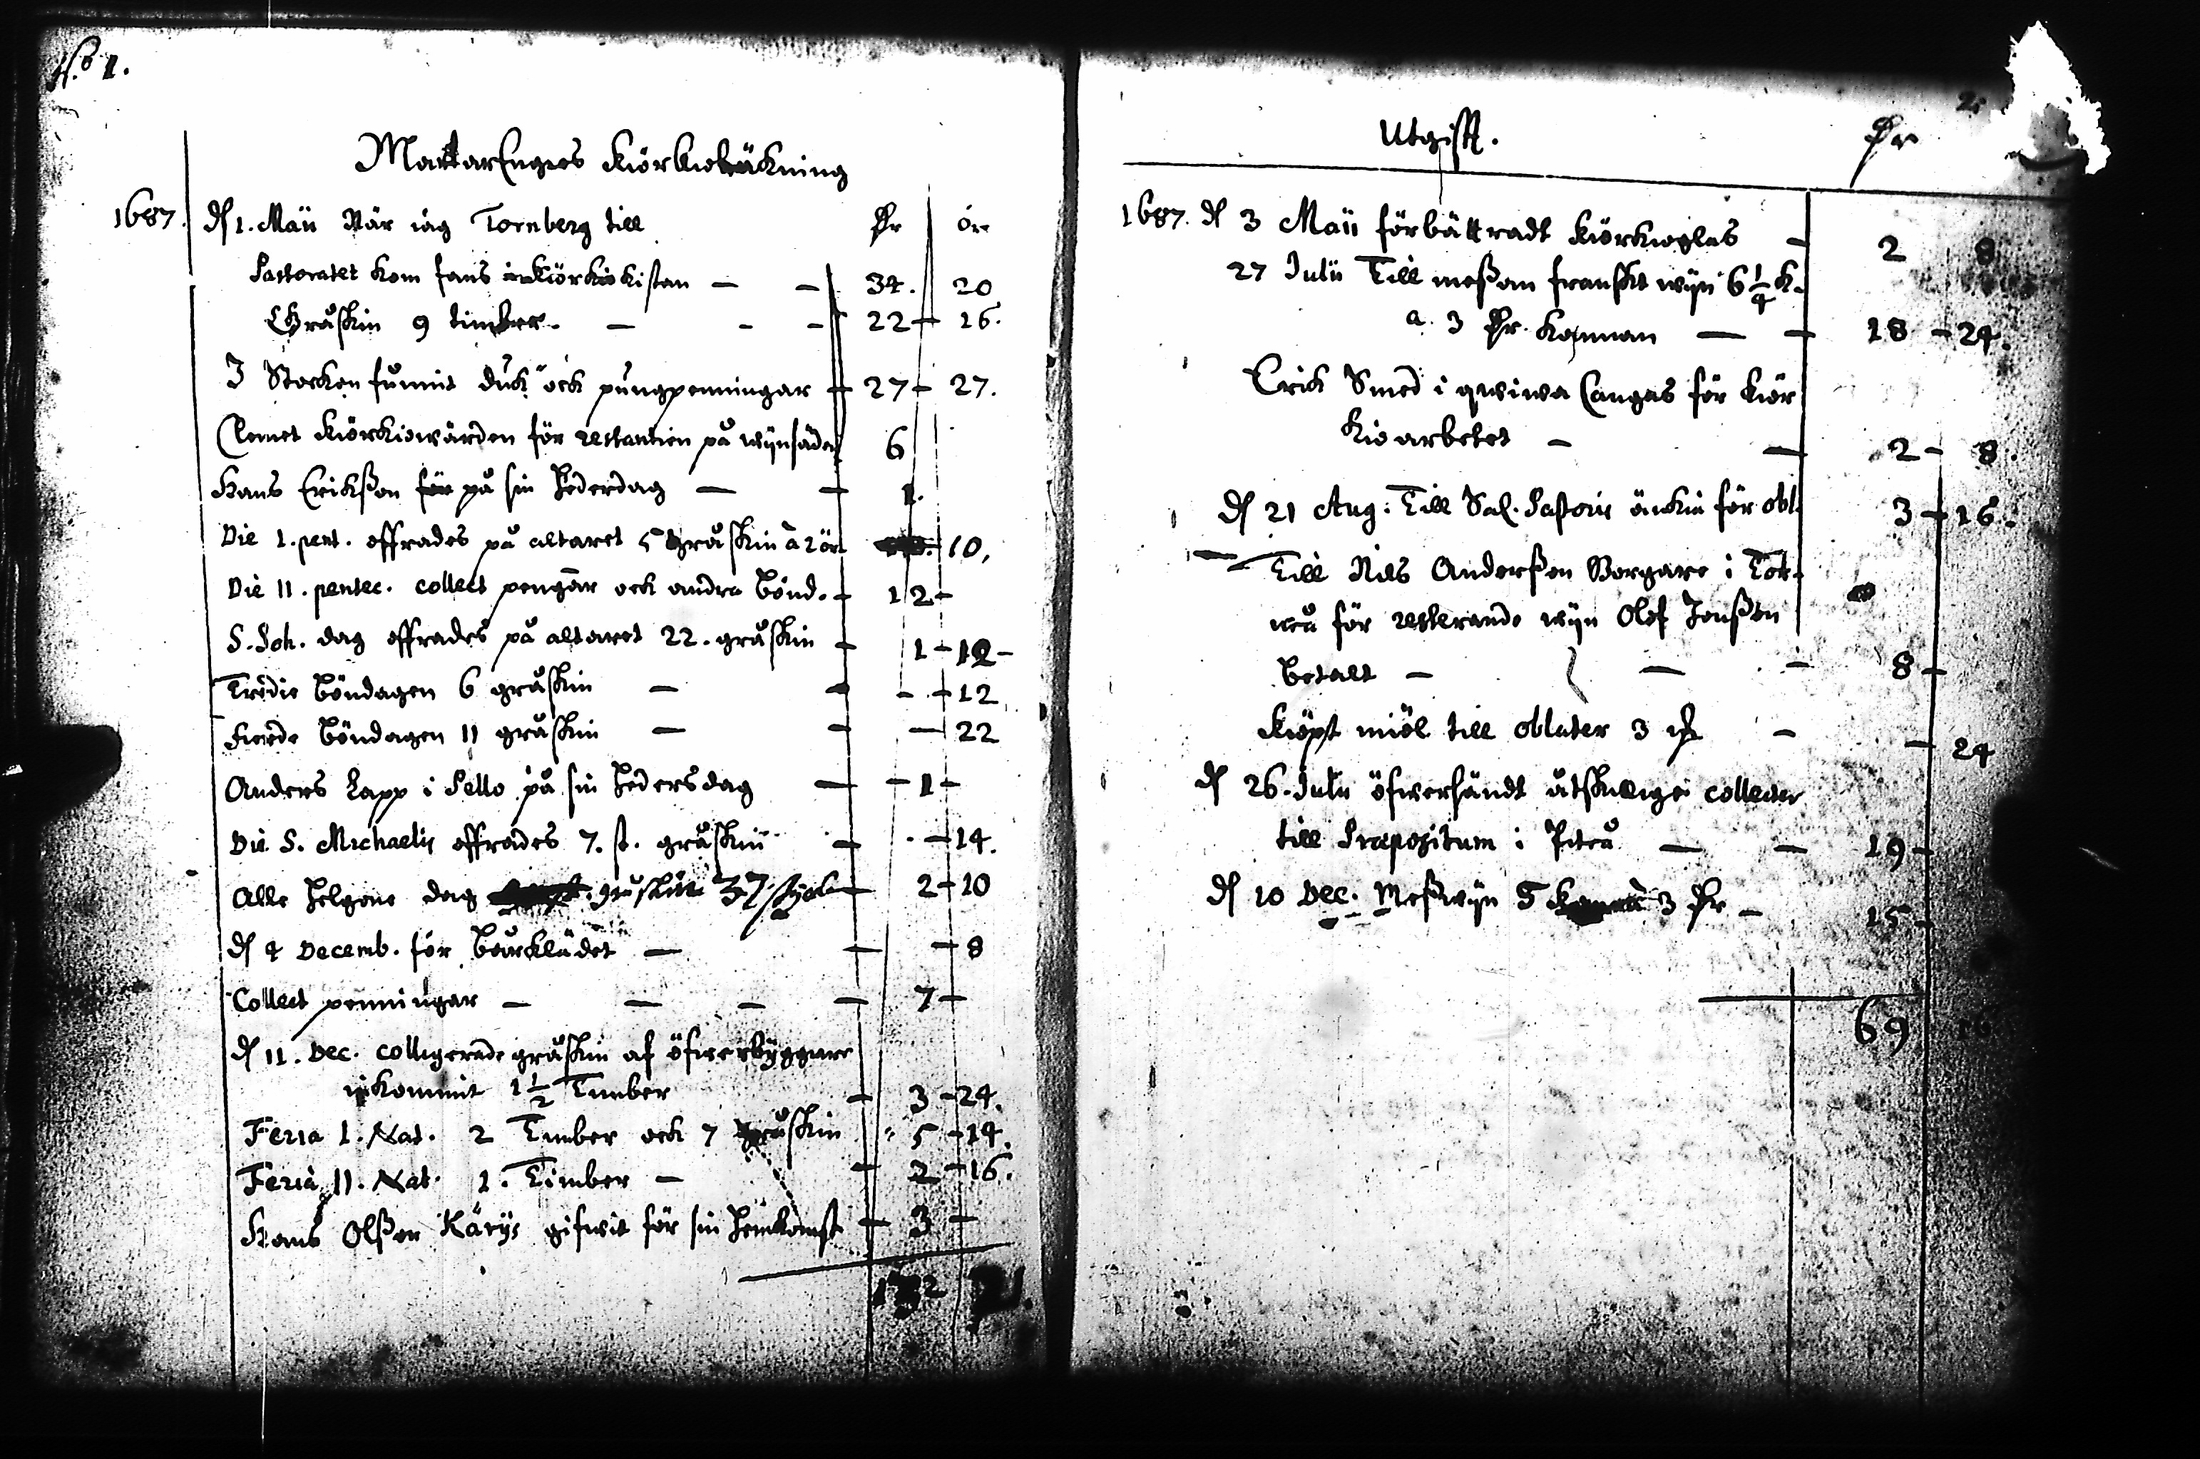 No 1.
MattarEngies Kiörkioräkning
1687. d. 1. Maii När iag Tornberg till Dr ör
Pastoratet kom fans i Kiörkiokistan — — 34. 20
Gråskin 9 timber. — - - 22 - 16.
I Stocken funnit duk ock pungpenningar - 27 - 27.
Clemet Kiörkiowärden för restantien på wijnsäden 6
Hans Erikßon på sin Hedersdag — — 1.
Die 1. pent. offrades på altaret 5 gråskin à 2 ör 10.
Die II. pentec. collect pengar ock andra Bönd. - 12 -
S. Joh. dag offrades på altaret 22. gråskin - 1 - 12 -
Tredie Böndagen 6 gråskin — - - - 12
Fierde Böndagen 11 gråskin — - — 22
Anders Lapp i Pello på sin Hedersdag — - 1 -
Die S. Michaelis offrades 7. st. gråskin - - 14.
Alle Helgone dag gråskin 37 stycken - 2 - 10
d. 4 Decemb. för Bårklädet — — - 8
Collect penningar — — — — 7 -
d. 11. Dec. colligerade gråskin af öfwerbyggare
inkommit 1 1/2 Timber - 3 - 24.
Feria I. Nat. 2 Timber ock 7 gråskin 5 - 14.
Feria II. Nat. 1. Timber — - 2 - 16.
Hans Olßon Kärijs gifwit för sin Heimkomst - 3 -
2.
Utgift. Dr
1687. d. 3 Maii förbättradt Kiörkioglas - 2 8
27 Julii Till meßan franskt wijn 6 1/4 K.
a. 3 Dr Kannan — - 18 - 24.
Erik Smed i qwiwa Cangas för Kiör
kioarbetet - — 2 - 8.
d. 21 Aug: Till Sal. Pastoris änkia för obl. 3 - 16.
Till Nils Anderßon Borgare i Tor-
neå för resterande wijn Olof Jonßon
Betalt - — - 8 -
Kiöpt miöl till oblater 3 - - 24
d. 26. Julii öfwersändt åtskillige collecter
till Præpositum i Piteå — — 19 -
d. 10 Dec. Meßwijn 5 3 Dr - 15 -
69 16